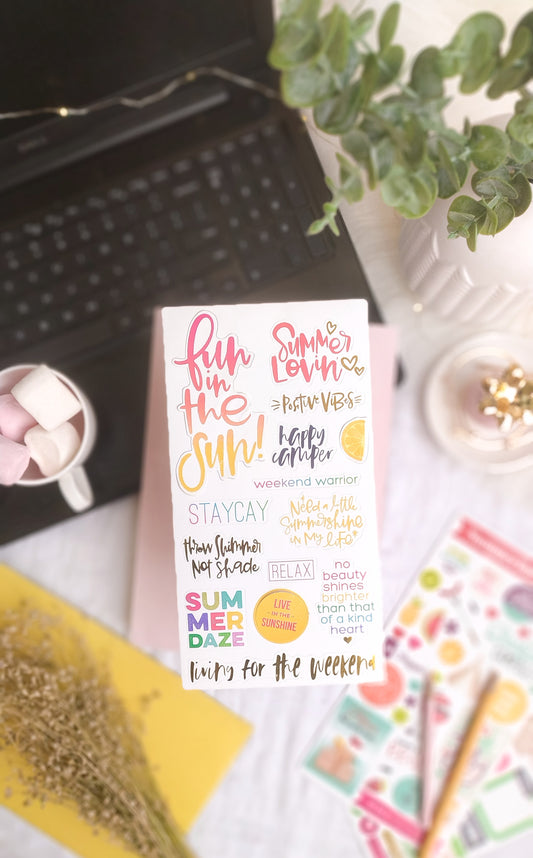 fun
in
the
sun!
Summer
Lovin'
Positive Vibes
happy
camper
weekend warrior
STAYCAY
Need a little
Summershine
in My life
throw Shimmer
Not Shade
RELAX
no
beauty
shines
brighter
than that
of a kind
heart
SUM
MER
DAZE
LIVE
IN THE
SUNSHINE
living for the weekend